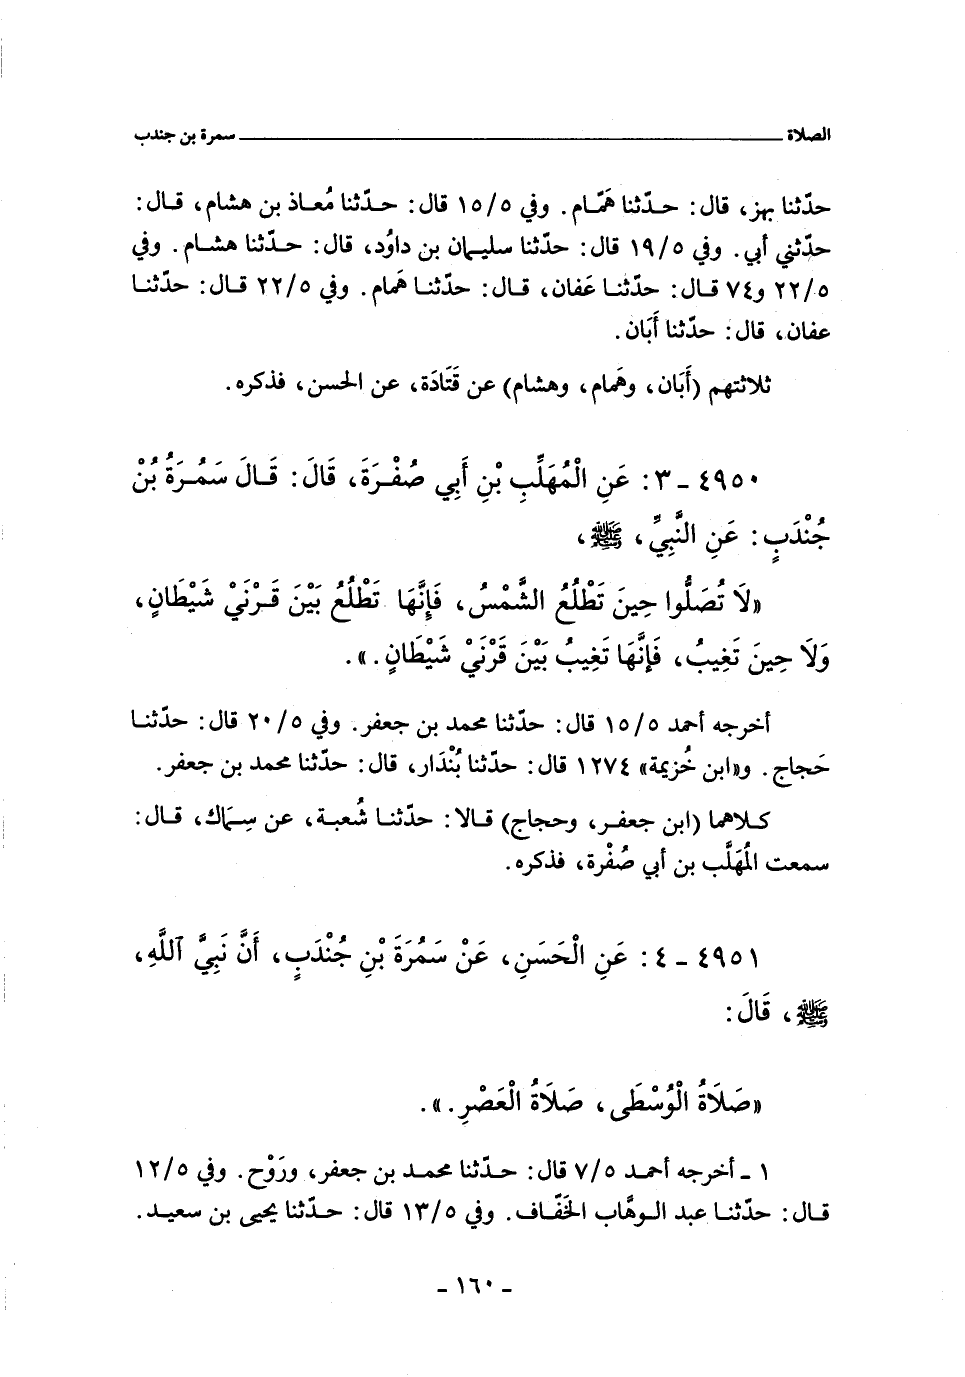 الصلاة ــــــــــــــــــــ سمرة بن جندب
حدّثنا بهز، قال: حـدّثنا هَمّـام. وفي ١٥/٥ قال: حـدّثنا مُعـاذ بن هشام، قـال:
حدّثني أبي. وفي ١٩/٥ قال: حدّثنا سليمان بن داوُد، قال: حـدّثنا هشـام. وفي
٢٢/٥ و٧٤ قـال: حدّثنـا عَفان، قـال: حدّثنـا هَمام. وفي ٢٢/٥ قـال: حدّثنـا
عفان، قال: حدّثنا أَبَان.
ثلاثتهم (أَبَان، وهَمام، وهشام) عن قَتَادَة، عن الحسن، فذكره.
٤٩٥٠ ـ ٣: عَنِ الْمُهَلَّبِ بْنِ أَبِي صُفْـرَةَ، قَالَ: قَـالَ سَمُـرَةُ بْنُ
جُنْدَبٍ: عَنِ النَّبِيِّ، ﷺ،
«لَا تُصَلُّوا حِينَ تَطْلُعُ الشَّمْسُ، فَإِنَّهَا تَطْلُعُ بَيْنَ قَـرْنَيْ شَيْطَانٍ،
وَلَا حِينَ تَغِيبُ، فَإِنَّهَا تَغِيبُ بَيْنَ قَرْنَيْ شَيْطَانٍ.».
أخرجه أحمد ١٥/٥ قال: حدّثنا محمد بن جعفر. وفي ٢٠/٥ قال: حدّثنـا
حَجاج. و«ابن خُزيمة» ١٢٧٤ قال: حدّثنا بُنْدَار، قال: حدّثنا محمد بن جعفر.
كـلاهما (ابن جعفـر، وحجاج) قـالا: حدّثنـا شُعبـة، عن سِـمَاك، قـال:
سمعت المُهَلَّب بن أبي صُفْرة، فذكره.
٤٩٥١ ـ ٤: عَنِ الْحَسَنِ، عَنْ سَمُرَةَ بْنِ جُنْدَبٍ، أَنَّ نَبِيَّ ٱللَّهِ،
ﷺ، قَالَ:
«صَلَاةُ الْوُسْطَى، صَلَاةُ الْعَصْرِ.».
١ ـ أخرجه أحمـد ٧/٥ قال: حـدّثنا محمـد بن جعفر، ورَوْح. وفي ١٢/٥
قـال: حدّثنـا عبد الـوهَّاب الخَفّـاف. وفي ١٣/٥ قال: حـدّثنا يحيى بن سعيـد.
ـ ١٦٠ ـ